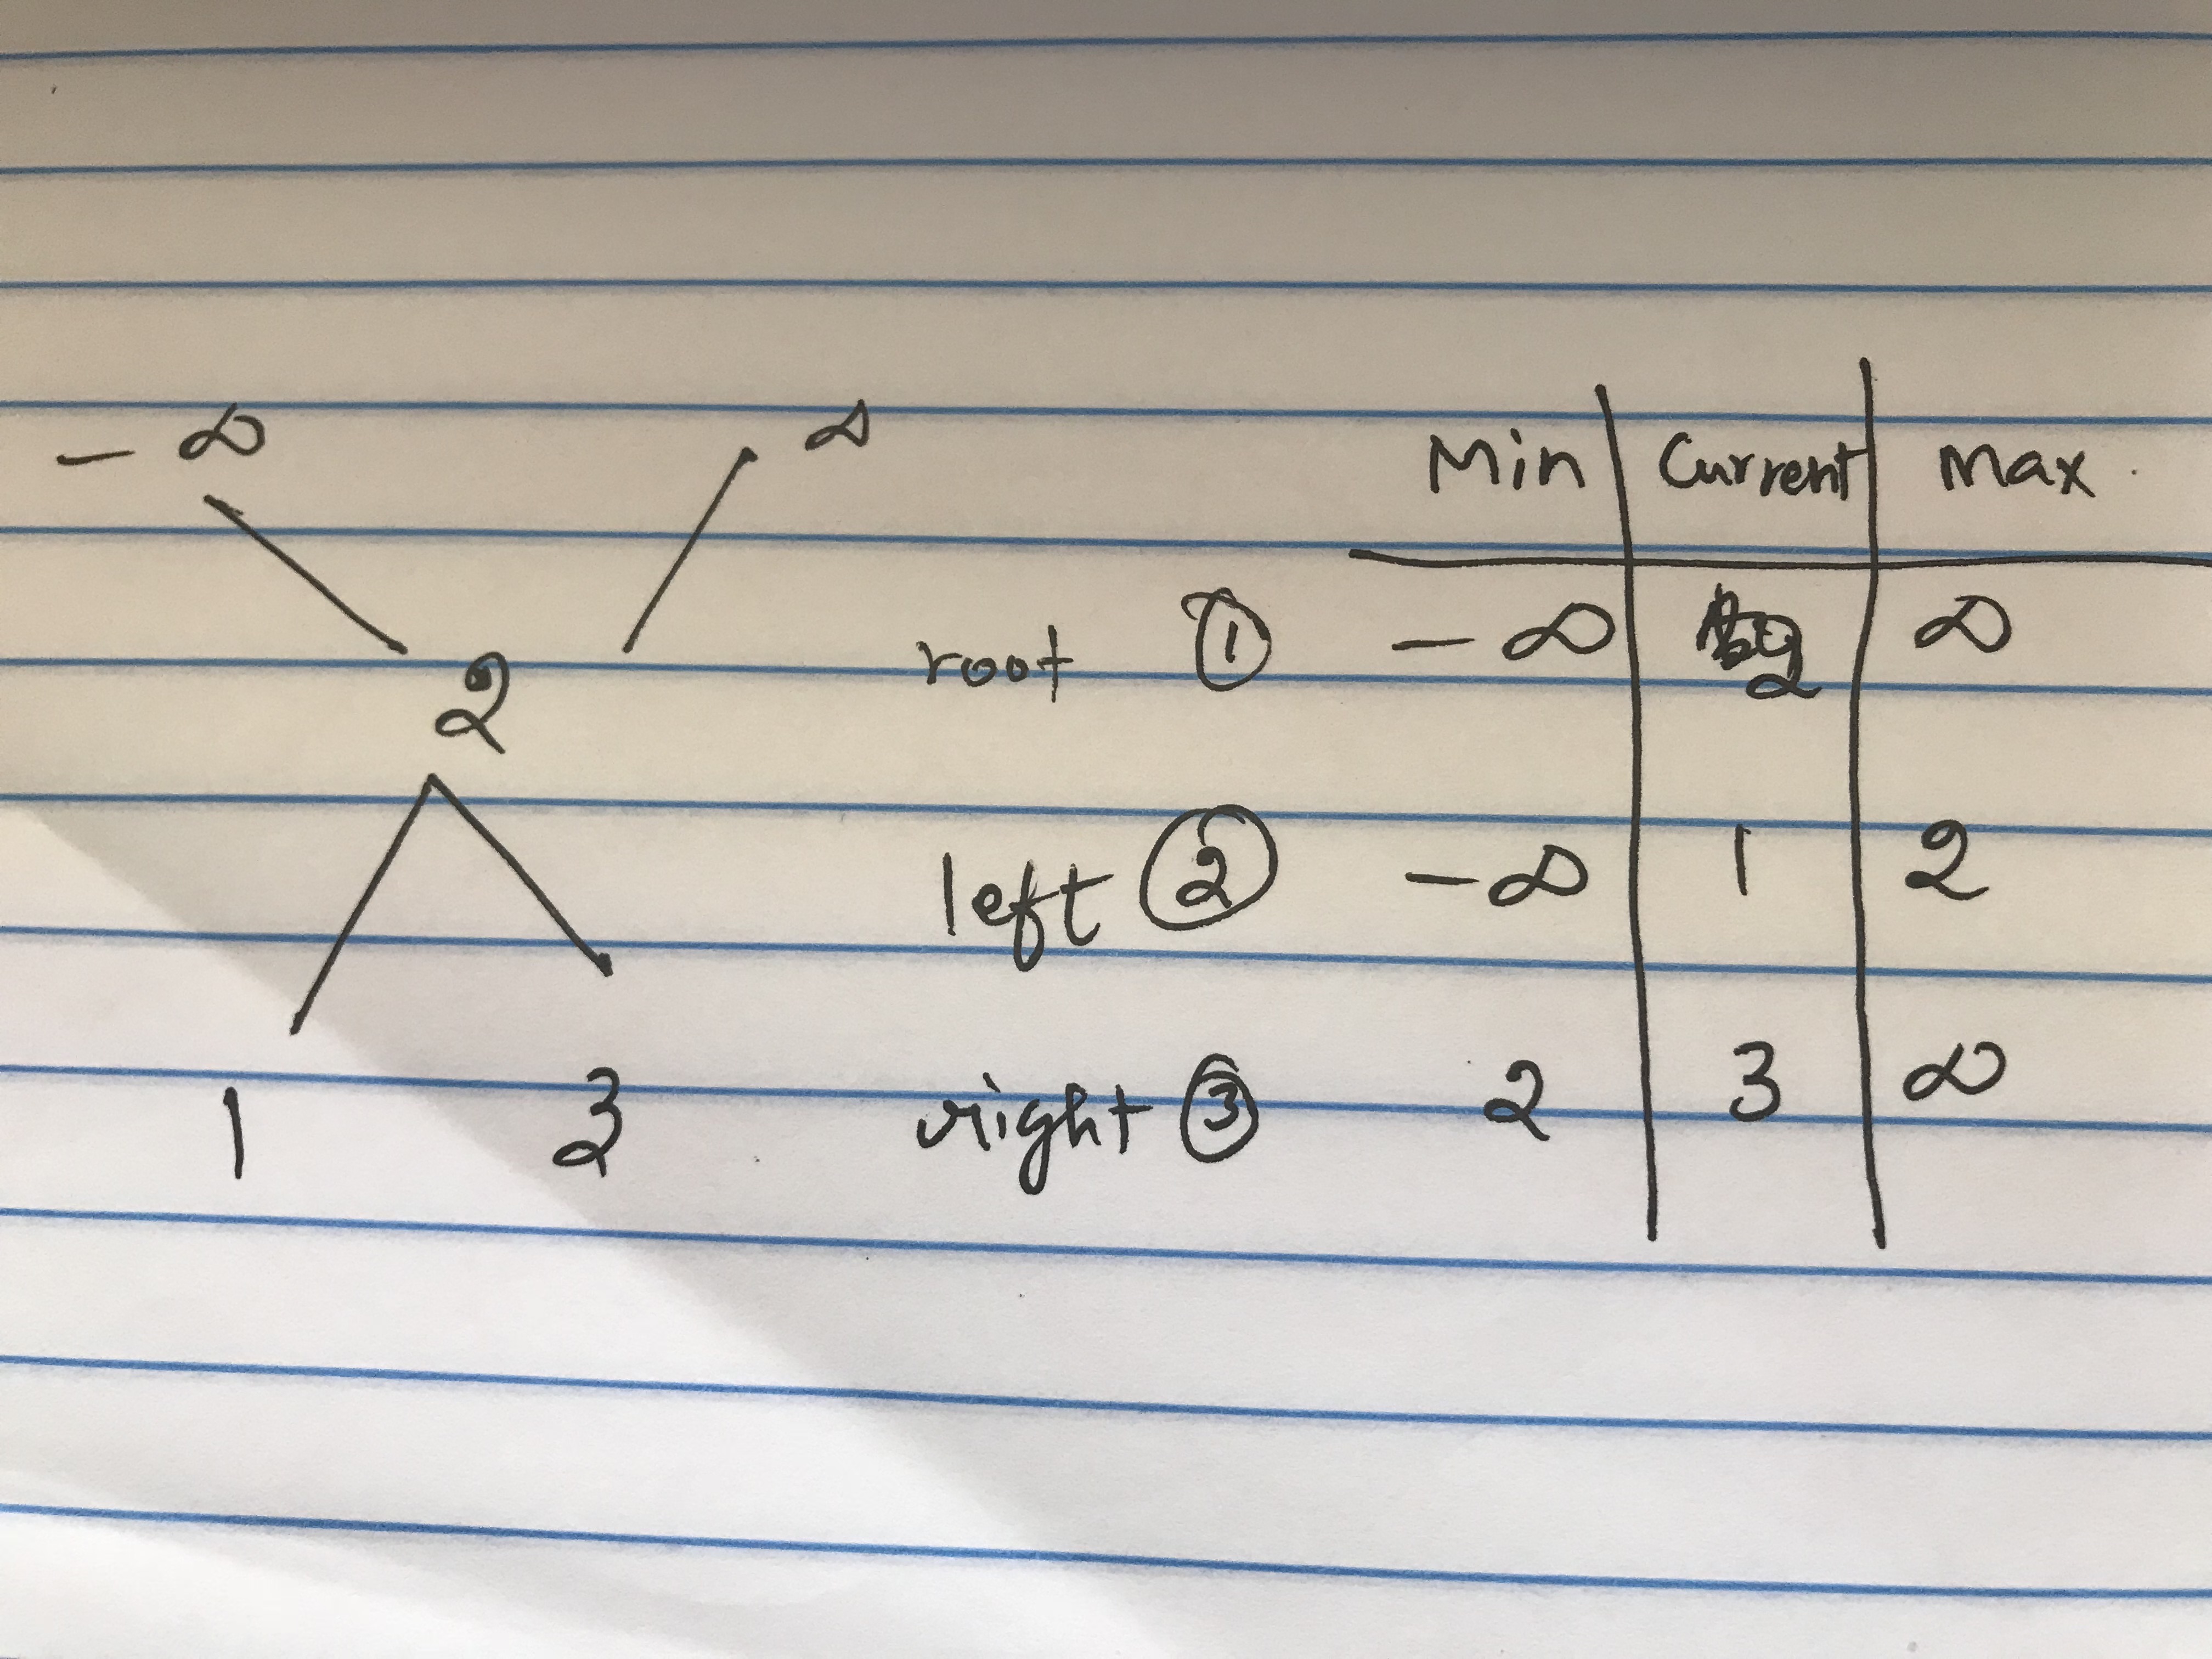 - ∞ ∞
2
1 3
Min Current Max
root ① - ∞ 2 ∞
left ② - ∞ 1 2
right ③ 2 3 ∞